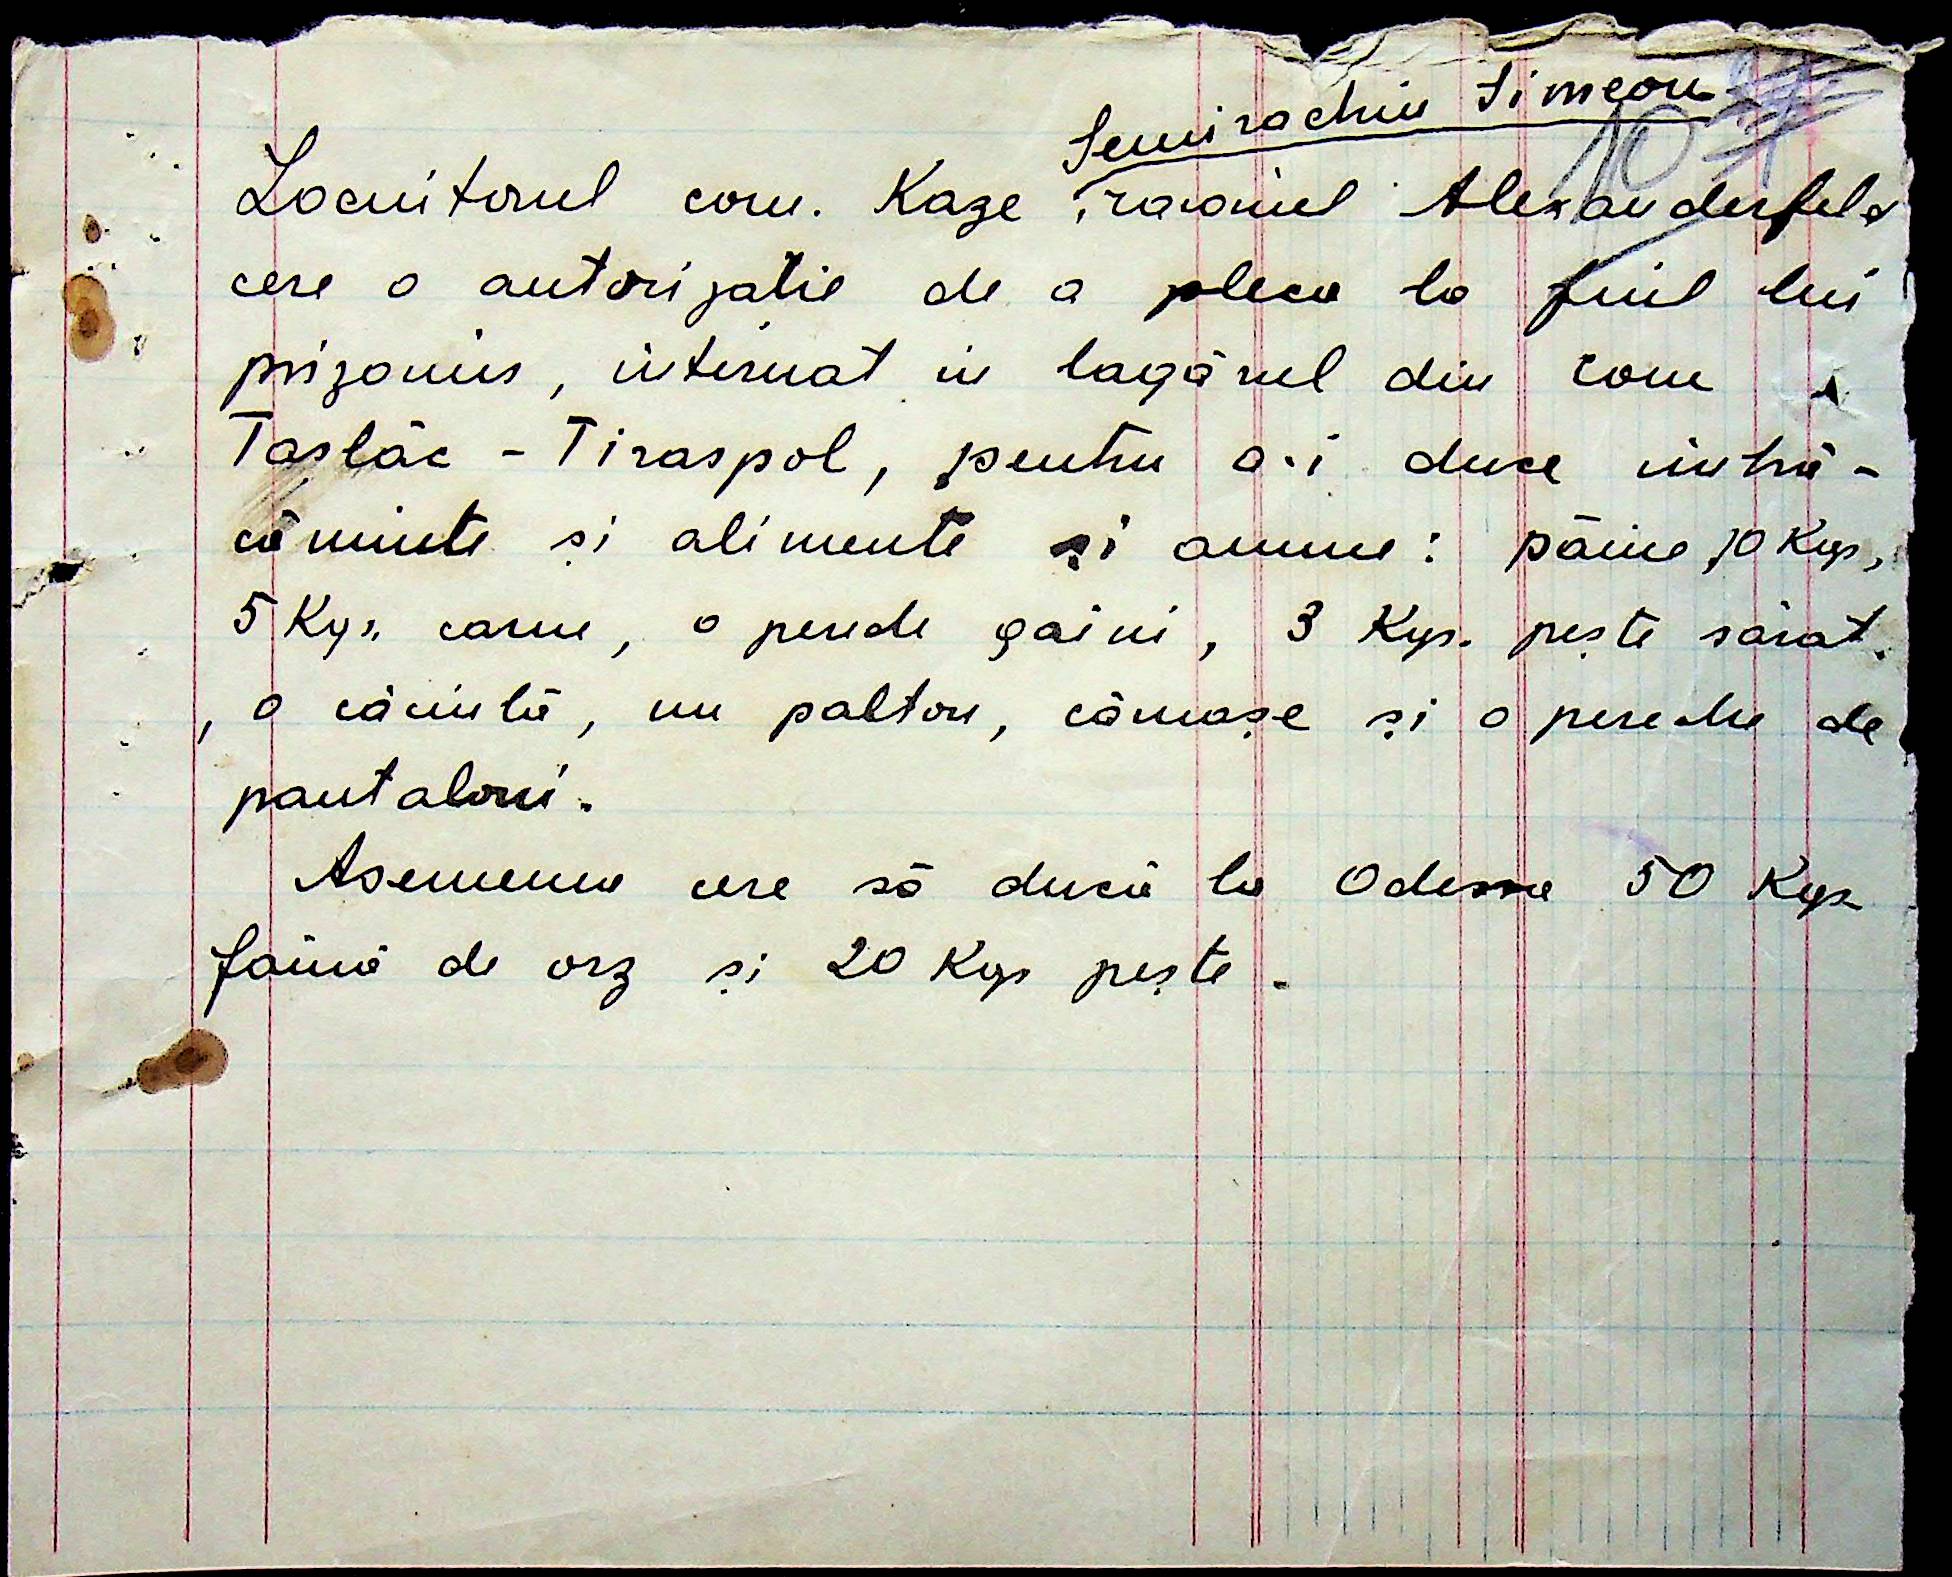 Semirachin Simeon
107
Locuitorul com. Kaze, raionul Alexanderfeld
cere o autorizatie de a pleca la fiul lui
prizonier, internat in lagărul din com
Taslâc - Tiraspol, pentru a-i duce imbră-
căminte și alimente și anume: pâine 10 Kgs,
5 Kgs. carne, o pereche găini, 3 Kgs. pește sărat.
, o căciulă, un palton, cămașe și o pereche de
pantaloni.
Asemenea cere să ducă la Odessa 50 Kgs
făină de orz și 20 Kgs pește.